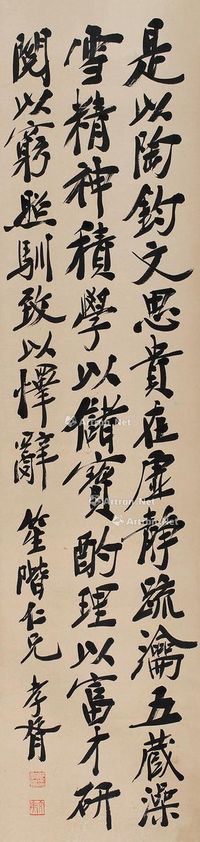 是以陶鈞文思貴在虛靜疏瀹五藏澡
雪精神積學以儲寶酌理以富才研
閱以窮照馴致以懌辭 笙階仁兄 孝胥
Artron.Net